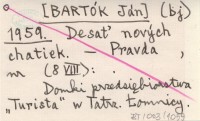 [BARTÓK Ján] (bj)
1959. Desať nových
chatiek. – Pravda,
nr (8 VIII):
Domki przedsiębiorstwa
„Turista" w Tatrz. Łomnicy.